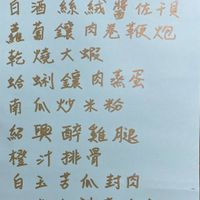 白酒絲絨醬佐干貝
蘿蔔鑲肉卷鞭炮
乾燒大蝦
蛤蜊鑲肉蒸蛋
南瓜炒米粉
紹興醉雞腿
橙汁排骨
白玉苦瓜封肉